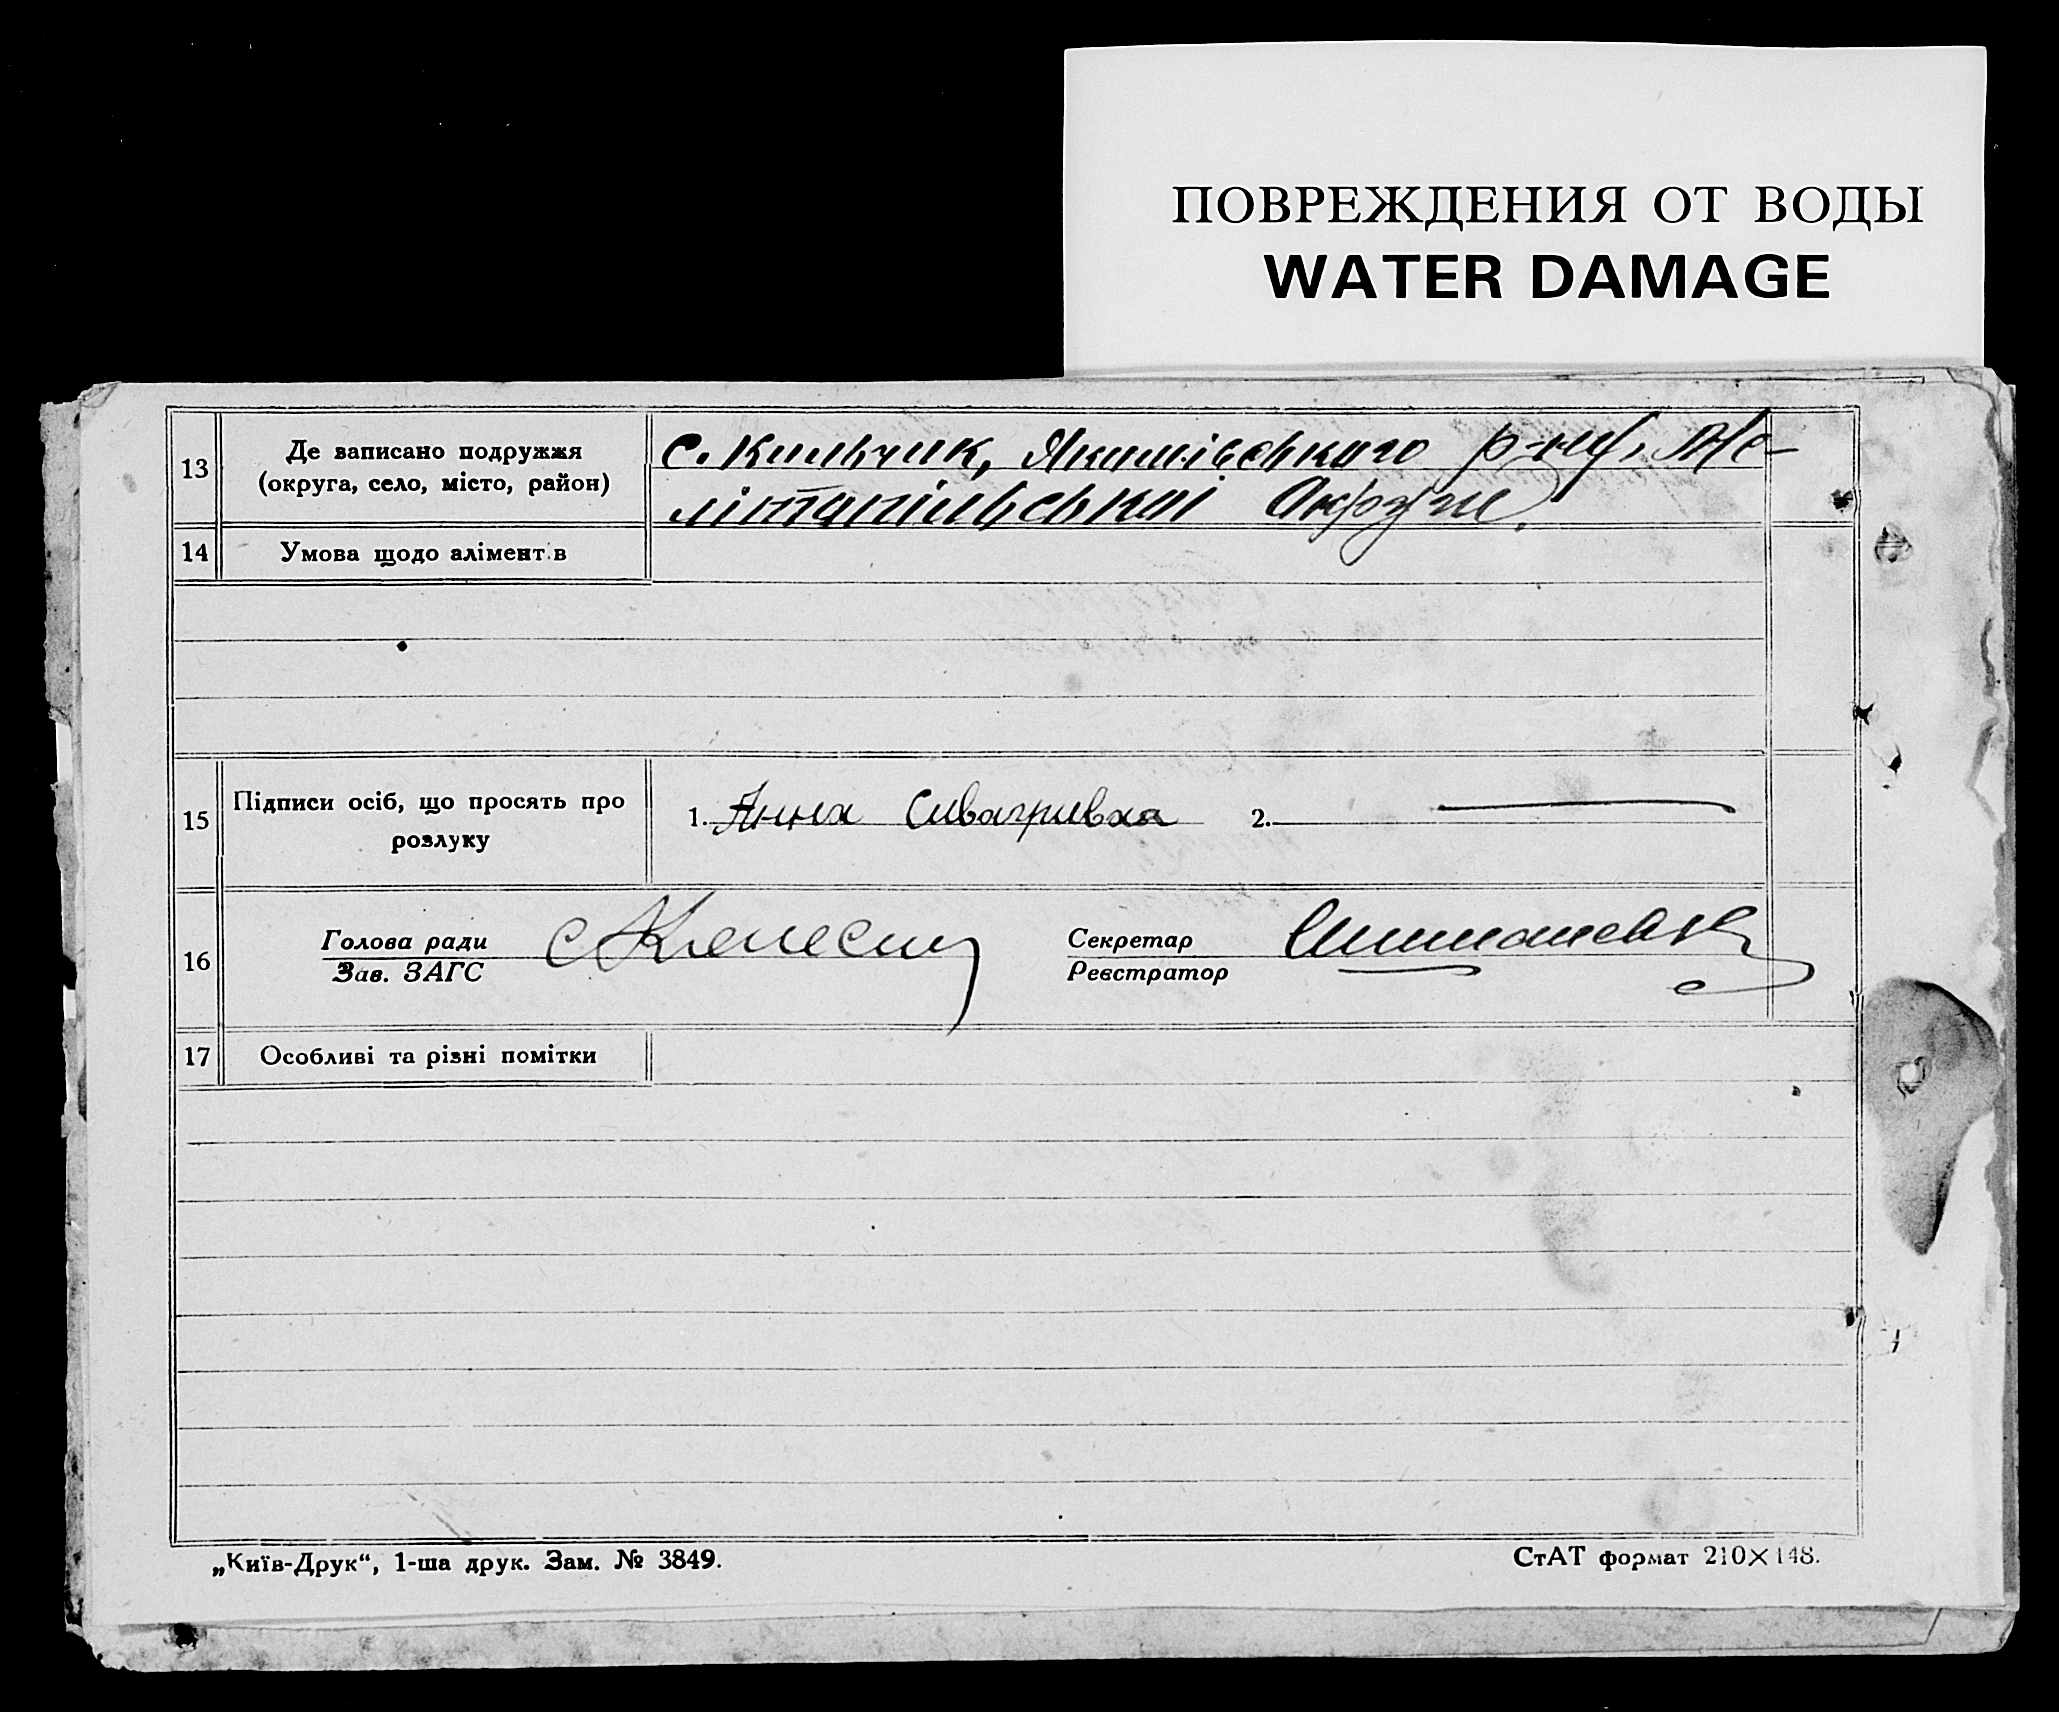 ПОВРЕЖДЕНИЯ ОТ ВОДЫ
WATER DAMAGE
13
Де записано подружжя
(округа, село, місто, район)
с. Кильчик, Якимівського р-ну, Ме-
літопільської Округи.
14
Умова щодо алімент.в
15
Підписи осіб, що просять про
розлуку
1. Анна 2.
16
Голова ради
Зав. ЗАГС
Секретар
Реєстратор
17
Особливі та різні помітки
„Київ-Друк“, 1-ша друк. Зам. № 3849.
СтАТ формат 210×148.